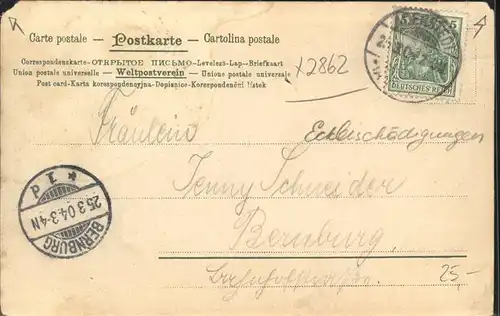 Carte postale - Postkarte - Cartolina postale
Correspondenzkarte - ОТКРЫТОЕ ПИСЬМО - Levelezö-Lap - Briefkaart
Union postale universelle - Weltpostverein - Unione postale universale
Post card - Karta korespondencyjna - Dopisnice - Korespondenční lístek
x2862
5
DEUTSCHES REICH
Fräulein
Eckbeschädigungen
Jenny Schneider
Bernburg
25.3.04.3-4N
BERNBURG
25,-